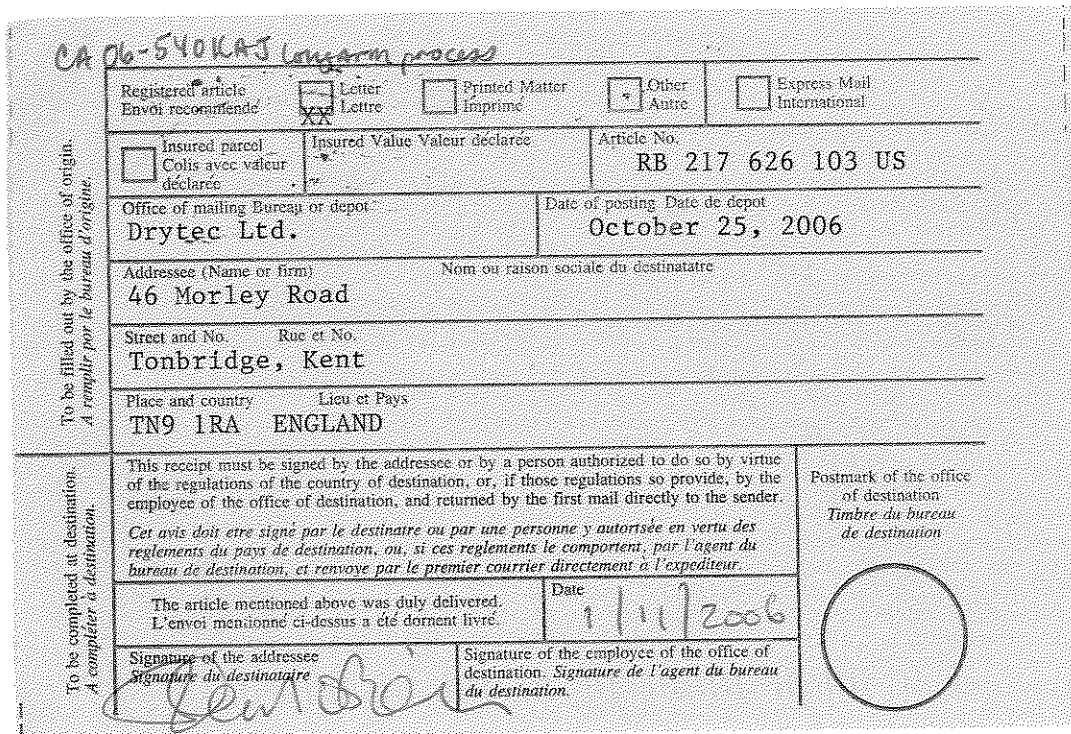 CA 06-540KAJ longarm process
Registered article
Envoi recommende
Letter
Lettre
XX
Printed Matter
Imprime
Other
Autre
Express Mail
International
Insured parcel
Colis avec valeur
déclarée
Insured Value Valeur déclarée
Article No.
RB 217 626 103 US
Office of mailing Bureau or depot
Drytec Ltd.
Date of posting Date de depot
October 25, 2006
Addressee (Name or firm) Nom ou raison sociale du destinatatre
46 Morley Road
Street and No. Rue et No.
Tonbridge, Kent
Place and country Lieu et Pays
TN9 1RA ENGLAND
To be filled out by the office of origin.
A remplir por le bureau d'origine.
This receipt must be signed by the addressee or by a person authorized to do so by virtue
of the regulations of the country of destination, or, if those regulations so provide, by the
employee of the office of destination, and returned by the first mail directly to the sender.
Cet avis doit etre signé par le destinatre ou par une personne y autortsée en vertu des
reglements du pays de destination, ou, si ces reglements le comportent, par l'agent du
bureau de destination, et renvoye par le premier courrier directement à l'expediteur.
Postmark of the office
of destination
Timbre du bureau
de destination
The article mentioned above was duly delivered.
L'envoi mentionne ci-dessus a été dornent livre.
Date
1/11/2006
Signature of the addressee
Signature du destinataire
Signature of the employee of the office of
destination. Signature de l'agent du bureau
du destination.
To be completed at destination.
A compléter à destination.